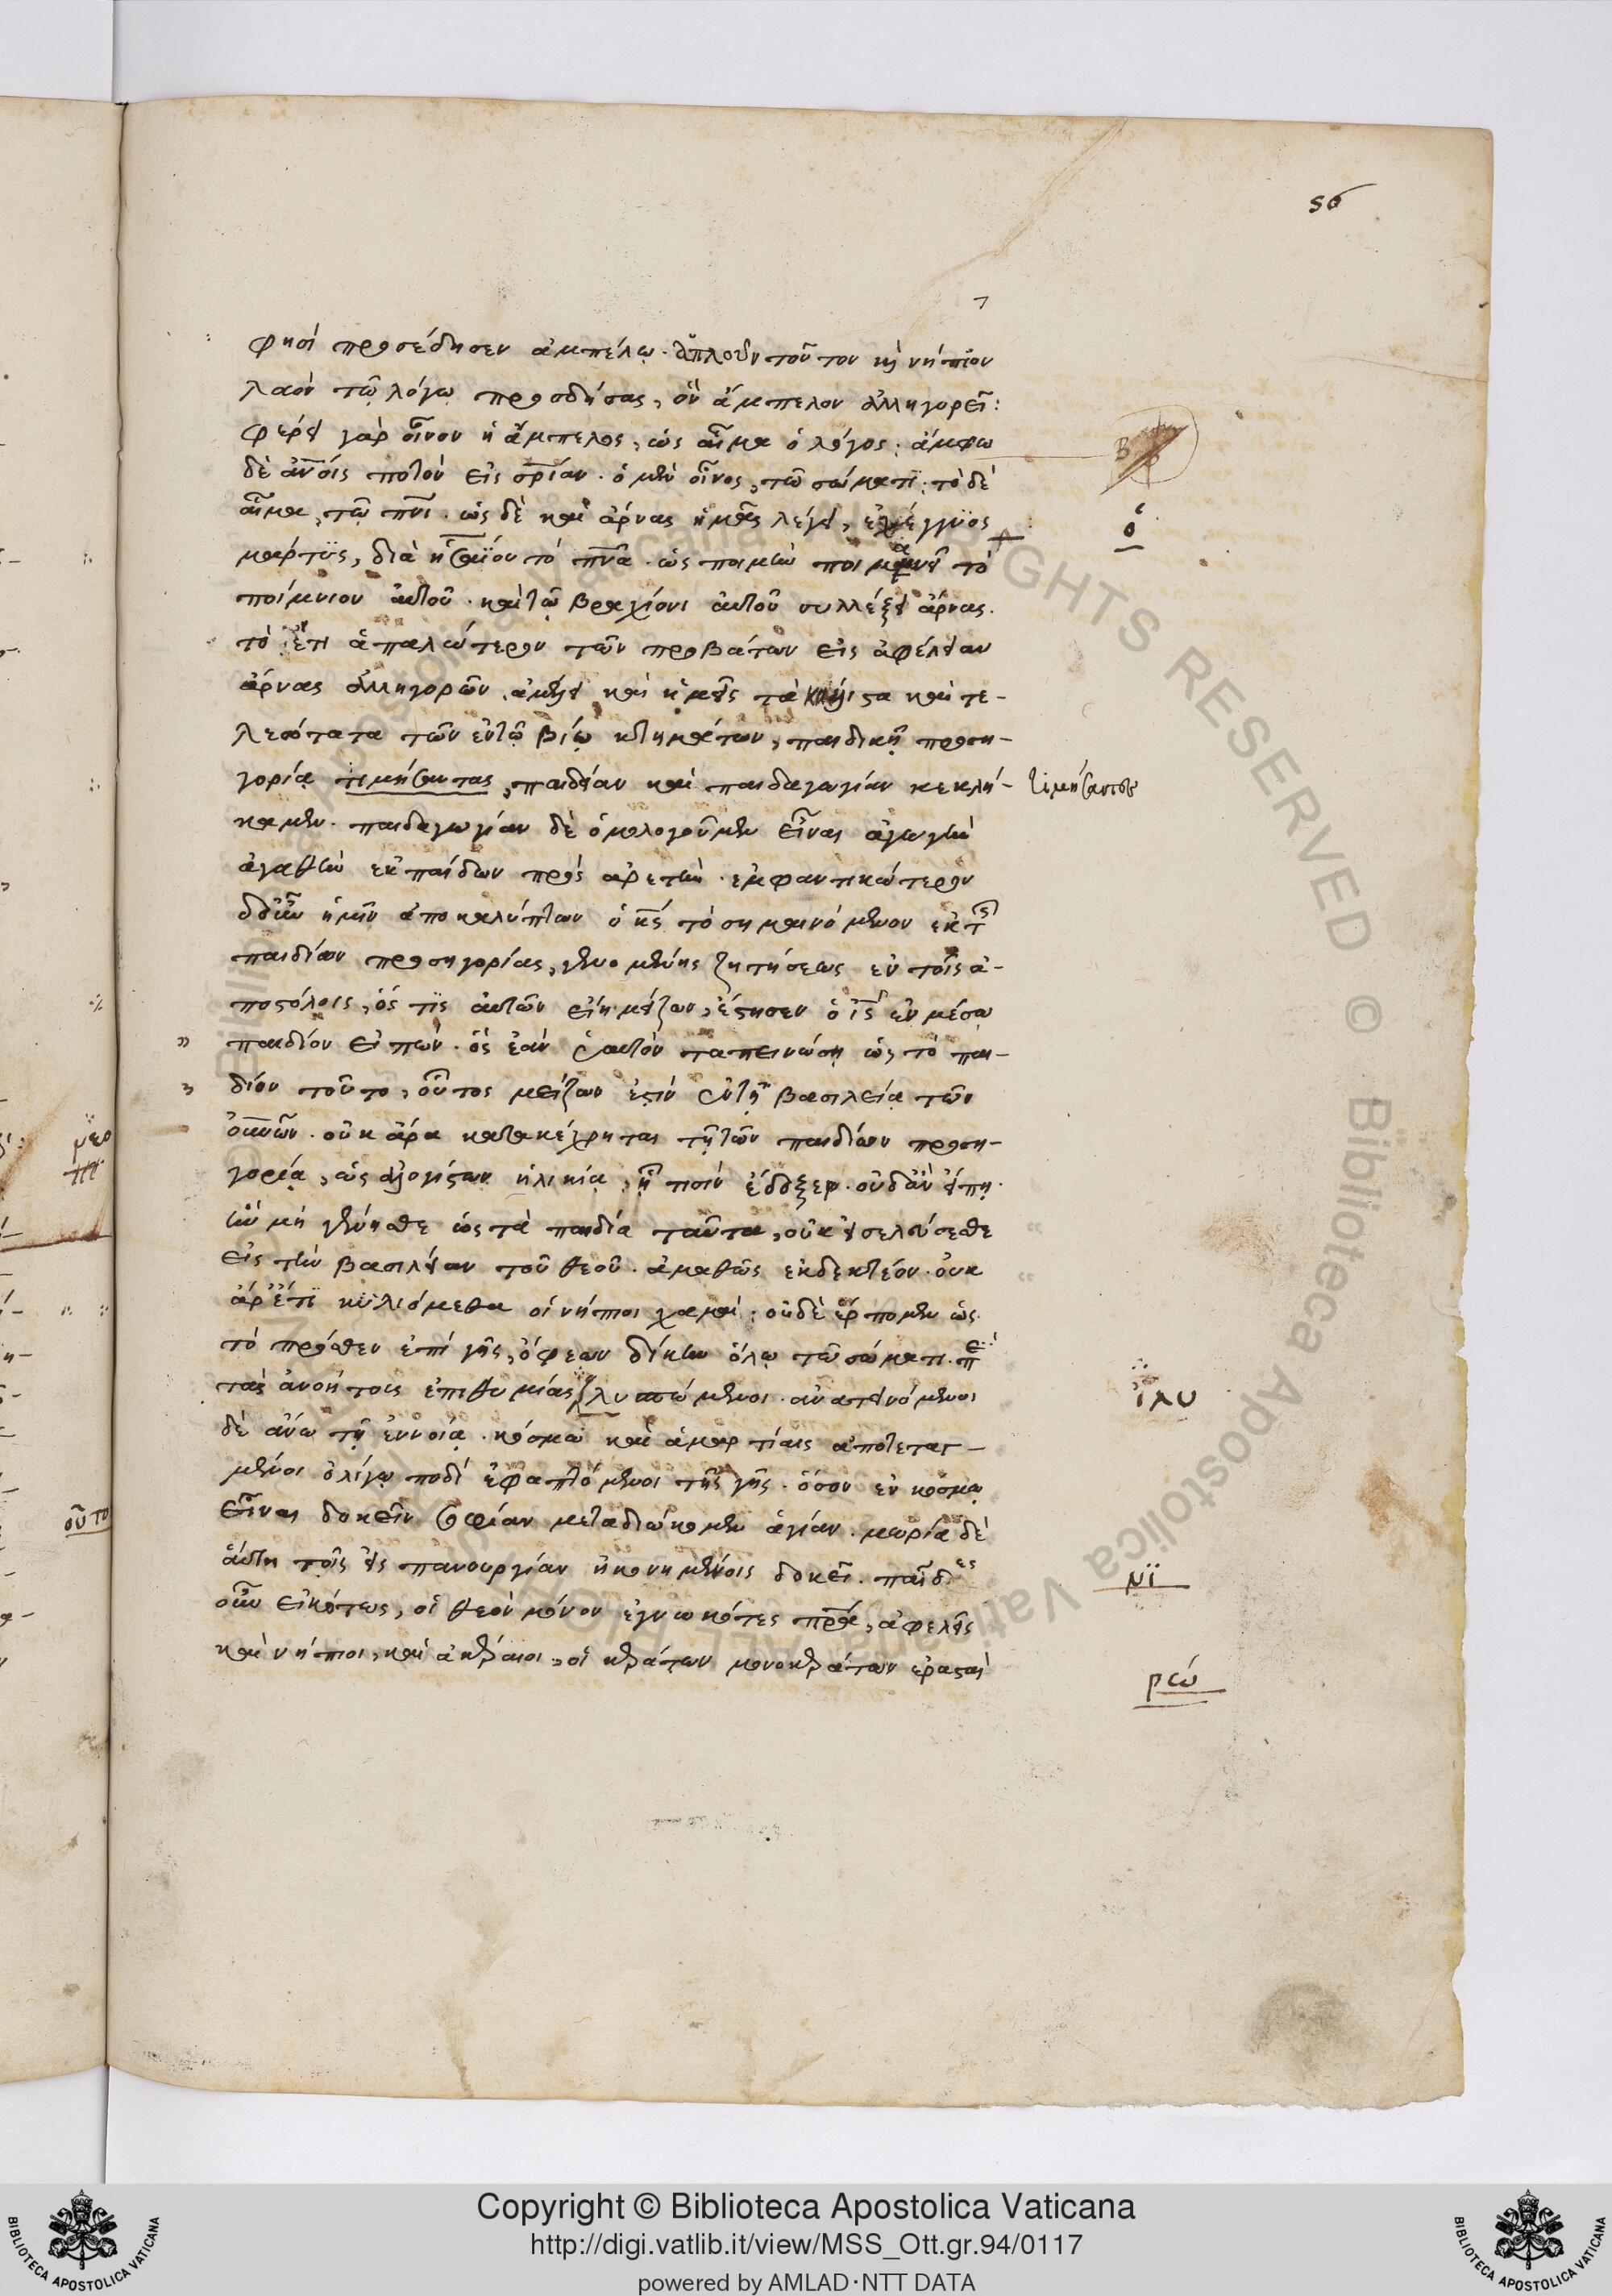 56
7
φησὶ προσέδησεν ἀμπέλῳ. ἁπλοῦν τοῦτον κ̀ νήπιον
λαὸν τῷ λόγῳ προσδήσας, ὃν ἄμπελον ἀλληγορεῖ:
φέρει γὰρ οἶνον ἡ ἄμπελος, ὡς αἷμα ὁ λόγος. ἄμφω
δὲ ἀν̅οις ποτὸν εἰς σρ̅ίαν. ὁ μὲν οἶνος, τῷ σώματι, τὸ δὲ
αἷμα, τῷ πν̅ι. ὡς δὲ καὶ ἄρνας ἡμᾶς λέγει, ἐχέγγυος
ὁ
μάρτυς, διὰ ἡσαΐου τὸ πν̅α. ὡς ποιμὴν ποιμανεῖ τὸ
ποίμνιον αὐτοῦ. καὶ τῷ βραχίονι αὐτοῦ συλλέξει ἄρνας.
τὸ ἔτι ἁπαλώτερον τῶν προβάτων εἰς ἀφέλειαν
ἄρνας ἀλληγορῶν. ἀμέλει καὶ ἡμεῖς τὰ κάλλιστα καὶ τε-
λεώτατα τῶν ἐν τῷ βίῳ κτημάτων, παιδικῇ προση-
γορίᾳ τιμήσαντας, παιδείαν καὶ παιδαγωγίαν κεκλή-
τιμήσαντες
καμεν. παιδαγωγίαν δὲ ὁμολογοῦμεν εἶναι ἀγωγὴν
ἀγαθὴν ἐκ παίδων πρὸς ἀρετήν. ἐμφαντικώτερον
δ᾽ οὖν ἡμῖν ἀποκαλύπτων ὁ κ̅ς τὸ σημαινόμενον ἐκ τ̅ς
παιδίων προσηγορίας, γενομένης ζητήσεως ἐν τοῖς ἀ-
ποστόλοις, ὅς τις αὐτῶν εἴη μείζων, ἔστησεν ὁ ι̅ς ἐν μέσῳ
παιδίον εἰπών. ὃς ἐὰν ἑαυτὸν ταπεινώσῃ ὡς τὸ παι-
δίον τοῦτο, οὗτος μείζων ἐστὶν ἐν τῇ βασιλείᾳ τῶν
οὐ̅νῶν. οὐκ ἄρα κατακέχρηται τῇ τῶν παιδίων προση-
γορίᾳ, ὡς ἀλογίστων ἡλικίᾳ, ᾗ τισὶν ἔδοξεν. οὐδ᾽ ἂν εἴπῃ.
ἢν μὴ γένησθε ὡς τὰ παιδία ταῦτα, οὐκ εἰσελεύσεσθε
εἰς τὴν βασιλείαν τοῦ θεοῦ. ἀμαθῶς ἐκδεκτέον. οὐκ
ἄρ᾽ ἔτι κυλιόμεθα οἱ νήπιοι χαμαί. οὐδὲ ἕρπομεν ὡς
τὸ πρόσθεν ἐπὶ γῆς, ὄφεων δίκην ὅλῳ τῷ σώματι. πε
τὰς ἀνοήτοις ἐπιθυμίας ἰλυσπώμενοι. ἀνατεινόμενοι
ἰλυ
δὲ ἄνω τῇ ἐννοίᾳ. κόσμῳ καὶ ἁμαρτίαις ἀποτεταγ-
μένοι ὀλίγῳ ποδὶ ἐφαπτόμενοι τῆς γῆς. ὅσον ἐν κόσμῳ
εἶναι δοκεῖν σοφίαν μεταδιώκομεν ἁγίαν. μωρία δὲ
αὕτη τοῖς εἰς πανουργίαν ἠκονημένοις δοκεῖ. παῖδες
νϊ
οὖν εἰκότως, οἱ θεὸν μόνον ἐγνωκότες πρ̅α, ἀφελεῖς
καὶ νήπιοι, καὶ ἀκέραιοι, οἱ κεράτων μονοκεράτων ἐρασταὶ
ρεώ
Copyright © Biblioteca Apostolica Vaticana
http://digi.vatlib.it/view/MSS_Ott.gr.94/0117
powered by AMLAD·NTT DATA